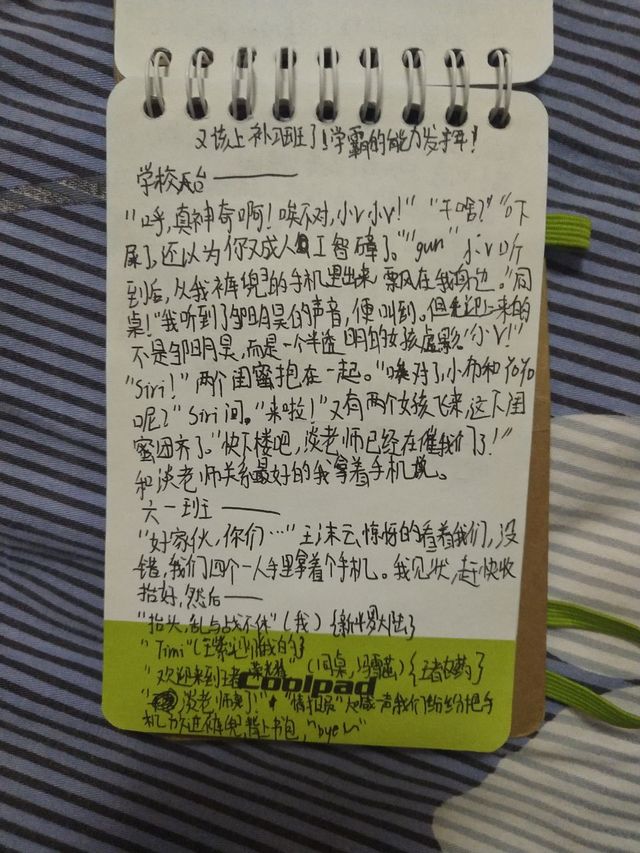 又该上补习班了！学霸的能力发挥！
学校天台———
"呼，真神奇啊！唉不对，小V小V！" "干啥？" "吓
尿了，还以为你又成人工智障了。" "gun" 小V听
到后，从我裤兜的手机里出来飘在我身边。"同
桌！"我听到了邹明昊的声音，便叫到。但走迎上来的
不是邹明昊，而是一个半透明的女孩虚影"小V！"
"Siri！"两个闺蜜抱在一起。"唉对了，小布和YoYo
呢？"Siri问。"来啦！"又有两个女孩飞来，这下闺
蜜团齐了。"快下楼吧，淡老师已经在催我们了！"
和淡老师关系最好的我拿着手机说。
六一班———
"好家伙，你们…"王沫云惊讶的看着我们，没
错，我们四个一人手里拿着个手机。我见状，赶快收
拾好，然后——
"抬头，乱与战不休"（我）{新世界大陆}
"Timi"
"欢迎来到王者荣耀"（同桌，冯雪茹）{王者}
Coolpad
"淡老师来了"
机放进裤兜，背上书包，"bye～"